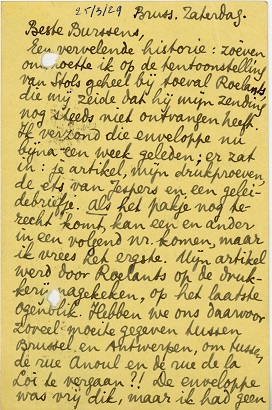 25/5/29 Bruss. Zaterdag.
Beste Burssens,
Een vervelende historie: zoëven
ontmoette ik op de tentoonstelling
van Stols geheel bij toeval Roelants,
die mij zeide dat hij mijn zending
nog steeds niet ontvangen heeft.
Ik verzond die enveloppe nu
bijna een week geleden; er zat
in: je artikel, mijn drukproeven,
de ets van Jespers en een gelei-
debriefje. Als het pakje nog te-
recht komt, kan een en ander
in een volgend nr. komen, maar
ik vrees het ergste. Mijn artikel
werd door Roelants op de druk-
kerij nagekeken, op het laatste
ogenblik. Hebben we ons daarvoor
zóveel moeite gegeven tussen
Brussel en Antwerpen, om tussen
de rue Anoul en de rue de la
Loi te vergaan?! De enveloppe
was vrij dik, maar ik had geen